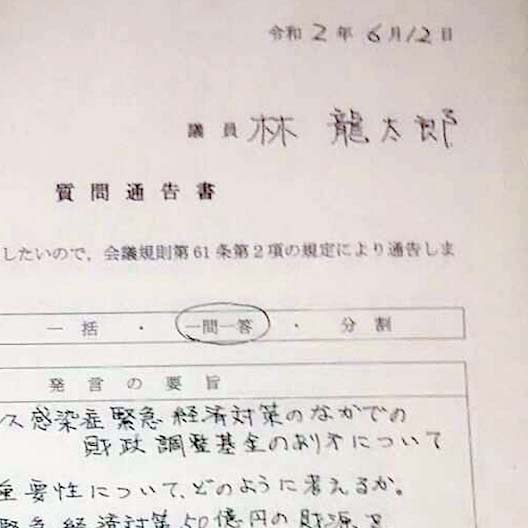 令和2年6月12日
議員 林 龍太郎
質問通告書
したいので、会議規則第61条第2項の規定により通告しま
一括・一問一答・分割
発言の要旨
ス感染症緊急経済対策のなかでの
財政調整基金のあり方について
重要性について、どのように考えるか。
緊急経済対策50億円の財源、